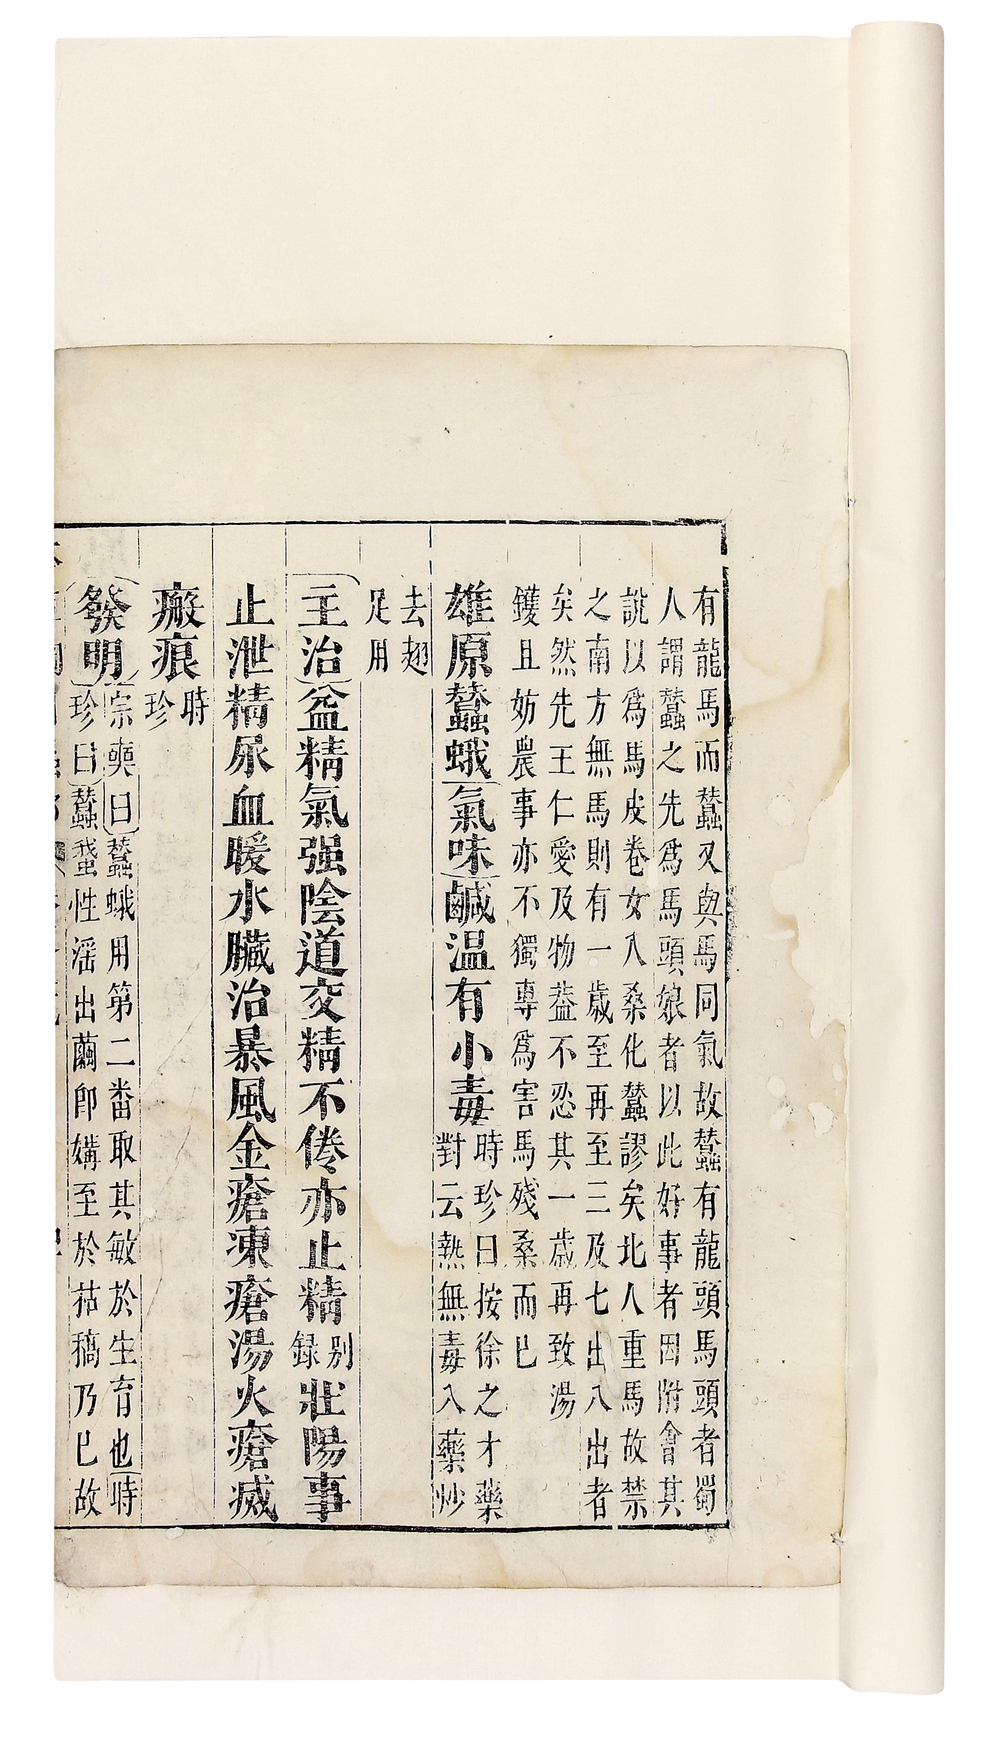 有龍馬而蠶又與馬同氣故蠶有龍頭馬頭者蜀
人謂蠶之先爲馬頭娘者以此好事者因附會其
說以爲馬皮卷女入桑化蠶謬矣北人重馬故禁
之南方無馬則有一歲至再至三及七出八出者
矣然先王仁愛及物葢不忍其一歲再致湯
鑊且妨農事亦不獨專爲害馬殘桑而已
雄原蠶蛾氣味鹹溫有小毒時珍曰按徐之才藥
對云熱無毒入藥炒
去翅
足用
主治益精氣强陰道交精不倦亦止精別錄壯陽事
止泄精尿血暖水臟治暴風金瘡凍瘡湯火瘡滅
瘢痕時珍
發明宗奭曰蠶蛾用第二番取其敏於生育也時
珍曰蠶蛾性淫出繭卽媾至於枯槁乃已故